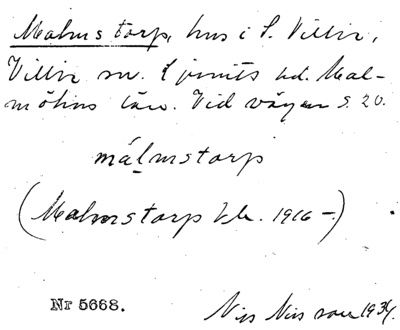 Malmstorp, hus i S. Villie,
Villie sn. Ljunits hd. Mal-
möhus län. Vid vägen S. 20.
málmstorp
(Malmstorp Vb. 1916 –)
Nr 5668.
Nils Nilsson 1934.